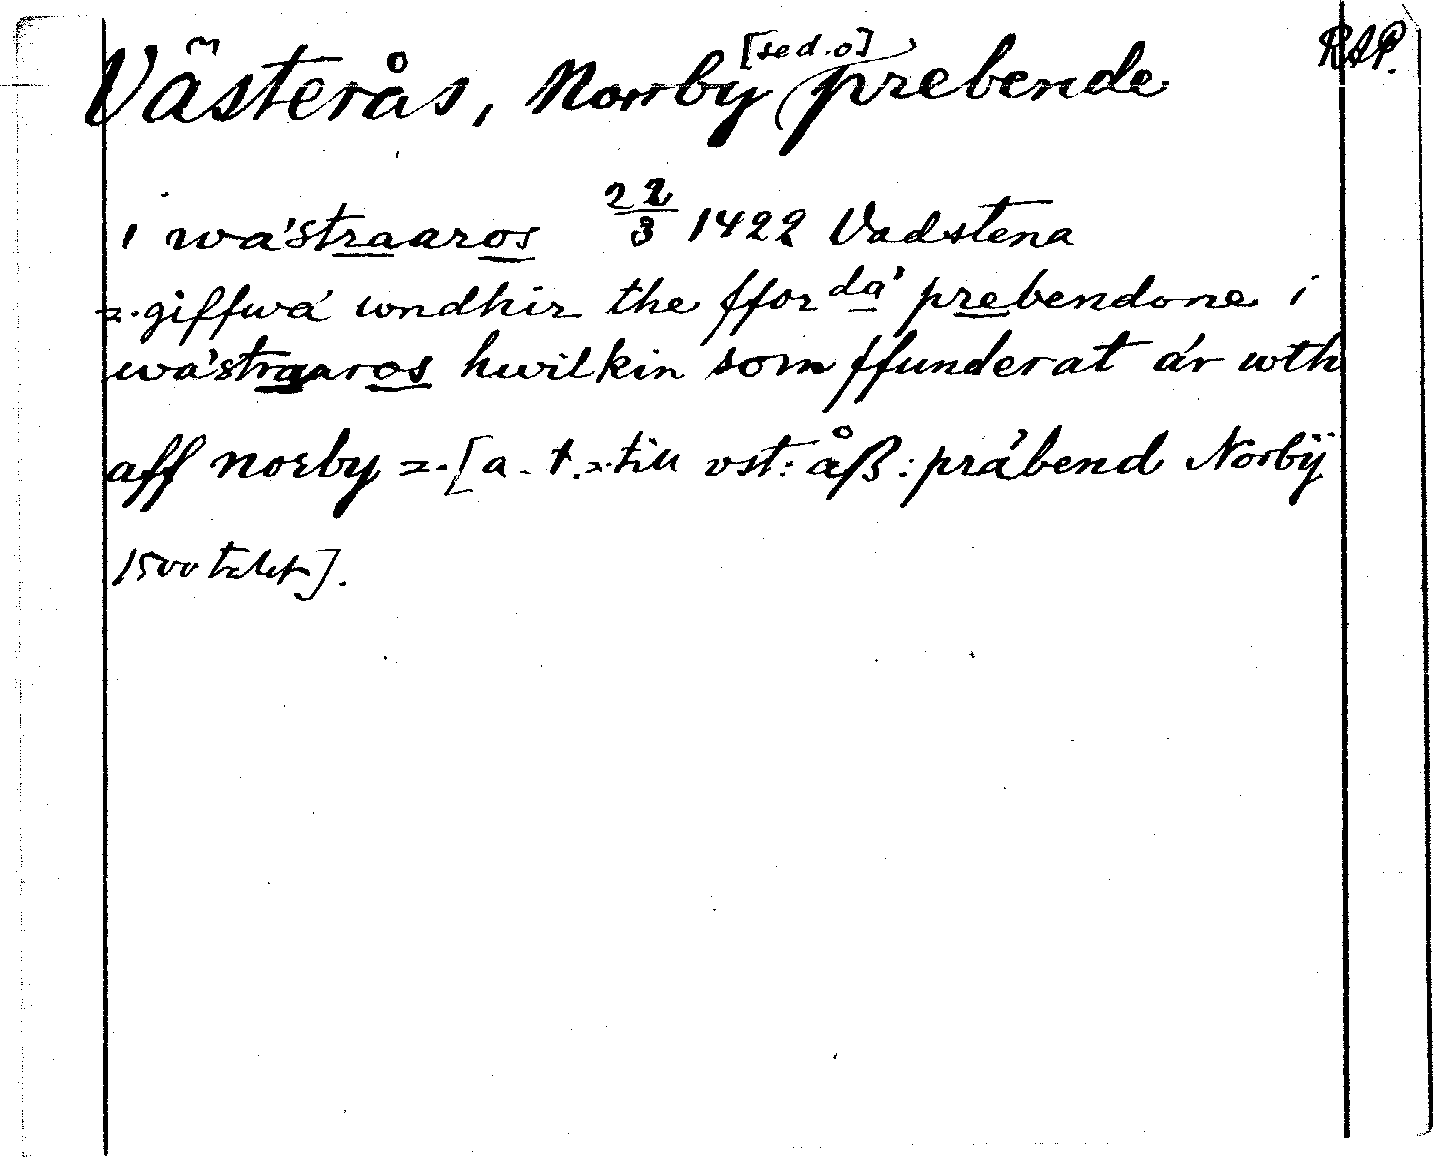 Västerås, Norrby [sed. o] prebende RAP.
i wästraaros 22/3 1422 Vadstena
-. giffwä wndhir the fforda prebendone i
wästraaros hwilkin som ffunderat är wth
aff norby -. [a. t. -. till vst: åß: präbend Norbÿ
1500 talet].